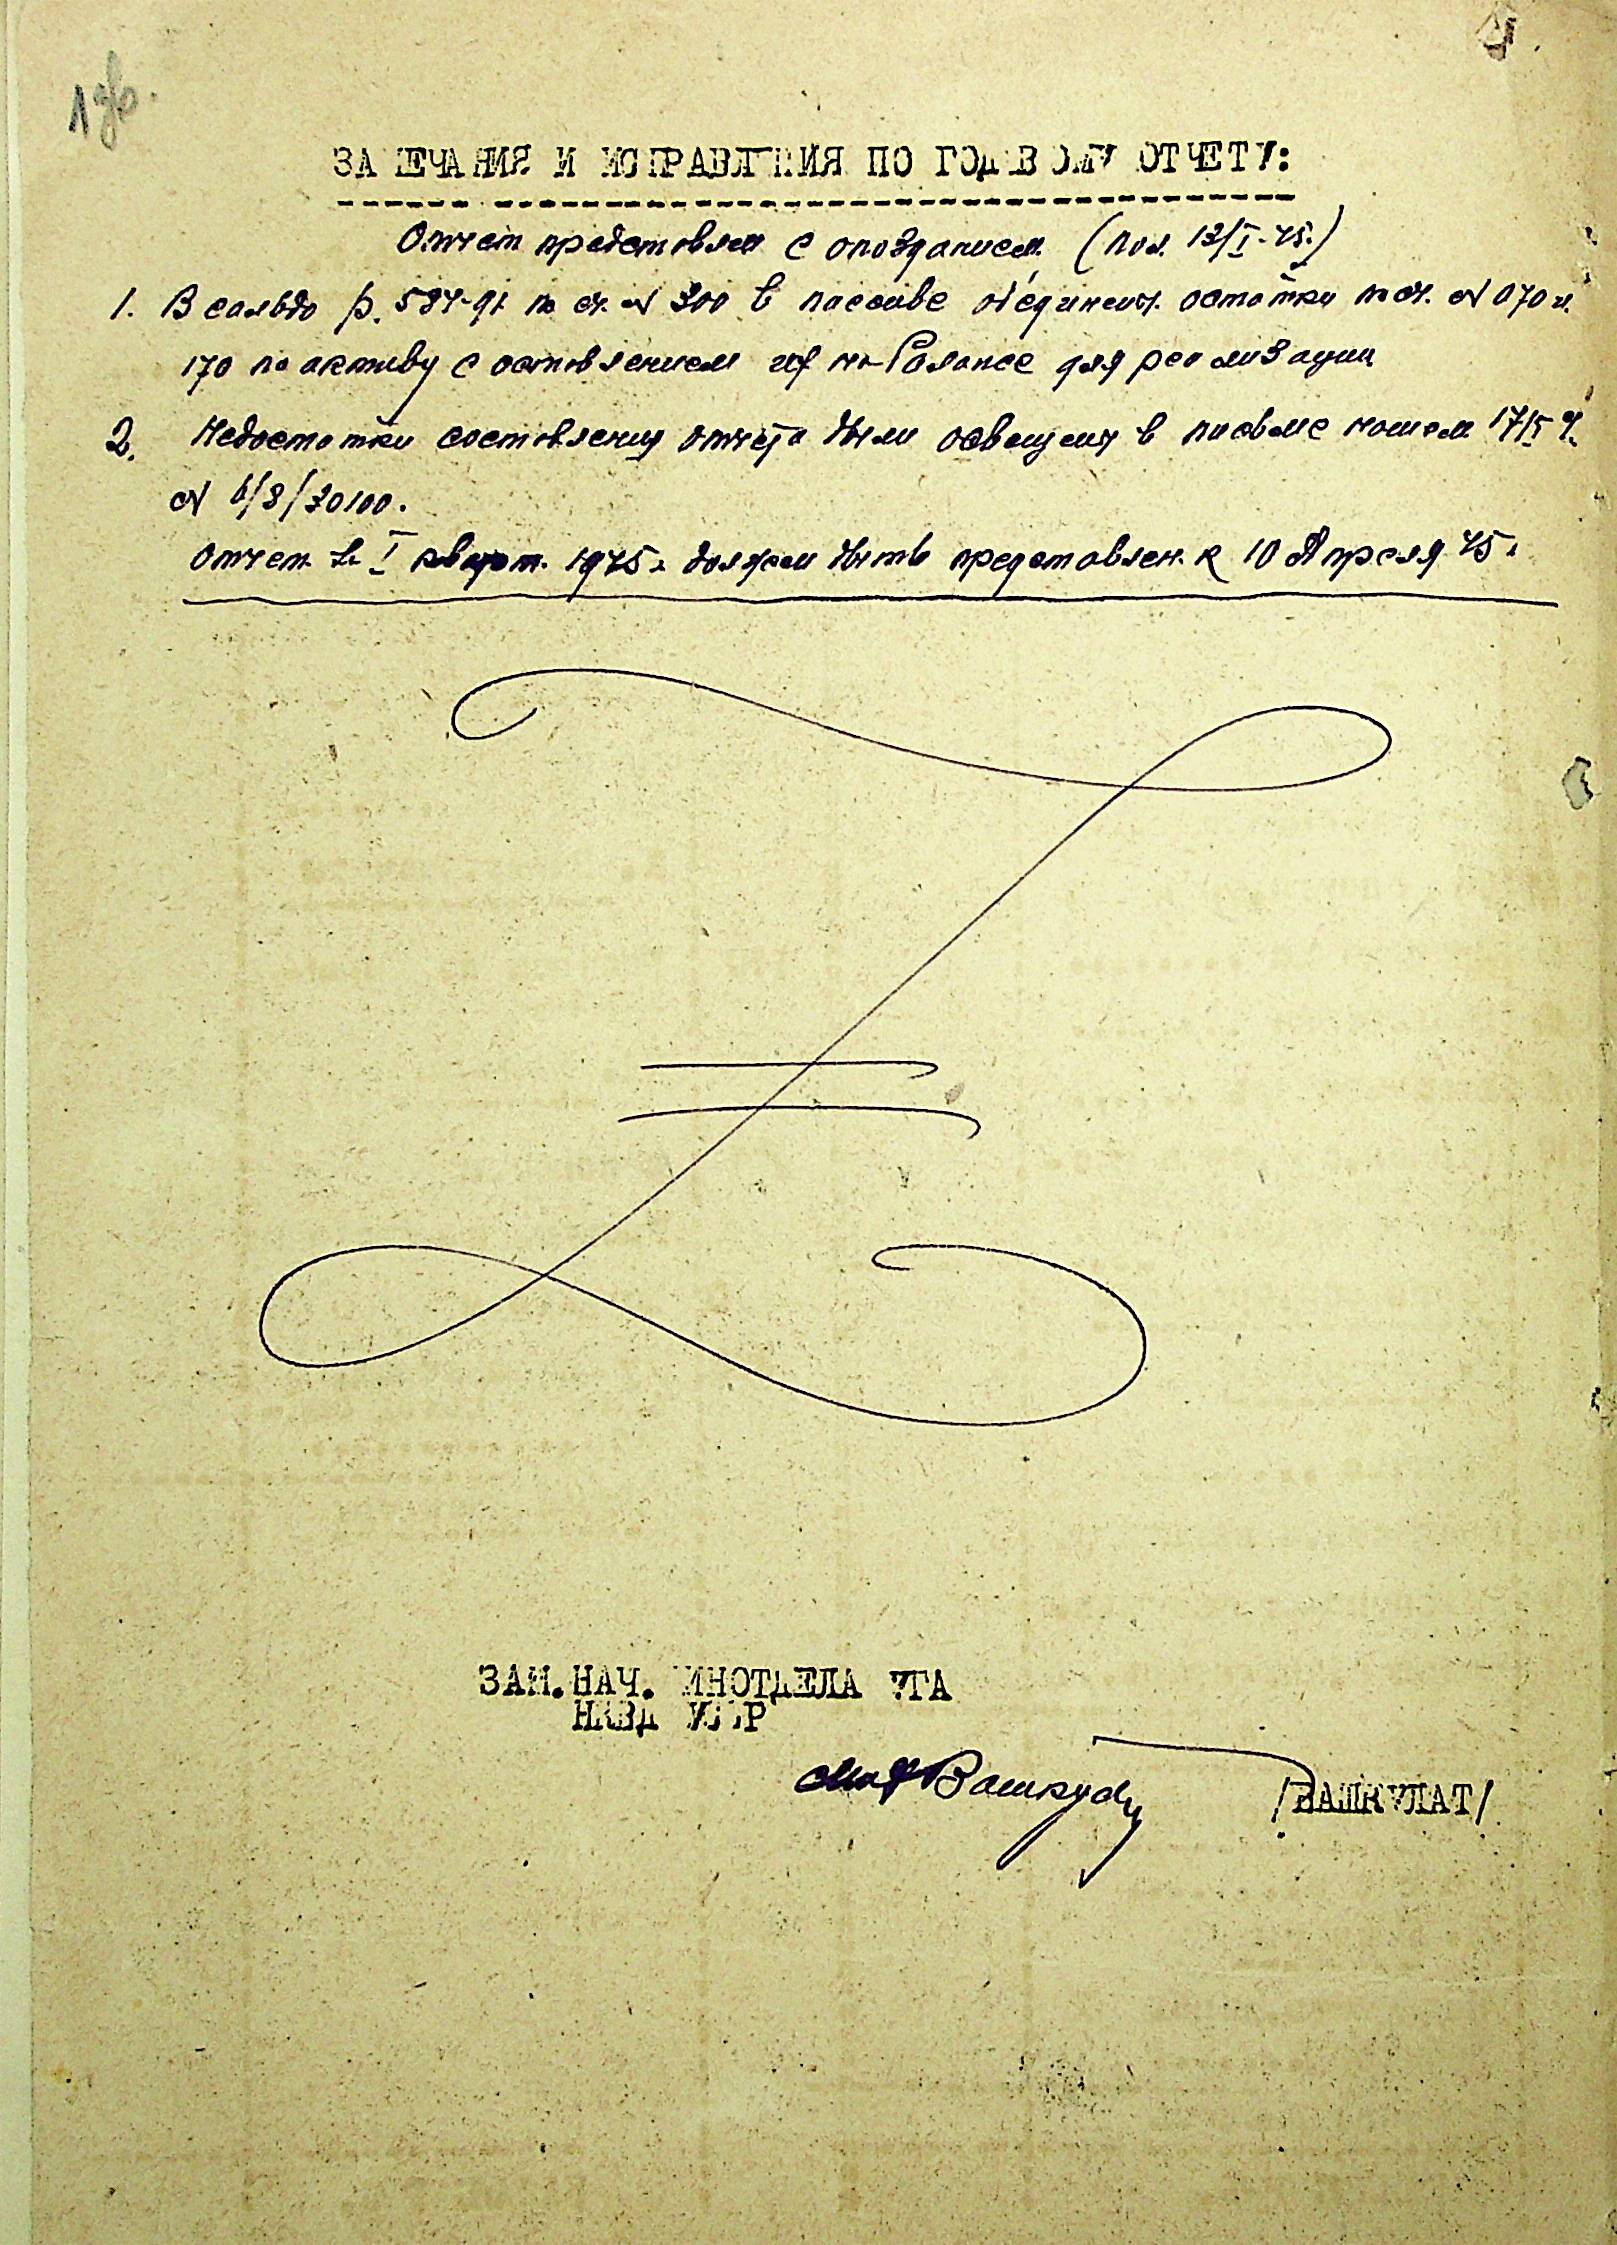 ЗАМЕЧАНИЯ И ИСПРАВЛЕНИЯ ПО ГОДОВОМУ ОТЧЕТУ:
Отчет представлен с опозданием (пол. 12/I-45.)
1. В сальдо р. 584-91 по сч. № 300 в пассиве об'единены остатки по сч. № 070 и
170 по активу с оставлением их на балансе для реализации
2. Недостатки составления отчета были освещены в письме нашем 17/I
№ 6/3/30100.
Отчет за I кварт. 1945г. должен быть представлен к 10 Апреля 45г
ЗАМ.НАЧ. ИНОТДЕЛА УГА
НКВД УССР
/ВАШКУЛАТ/